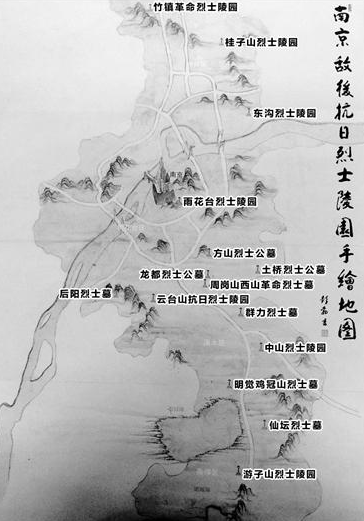 南京敌後抗日烈士陵園手繪地圖
竹镇革命烈士陵园
桂子山烈士陵园
东沟烈士陵园
南京
雨花台烈士陵园
方山烈士公墓
土桥烈士公墓
龙都烈士公墓
周岗山西山革命烈士墓
后阳烈士墓
云台山抗日烈士陵园
群力烈士墓
中山烈士陵园
明觉鸡冠山烈士墓
仙坛烈士墓
游子山烈士陵园